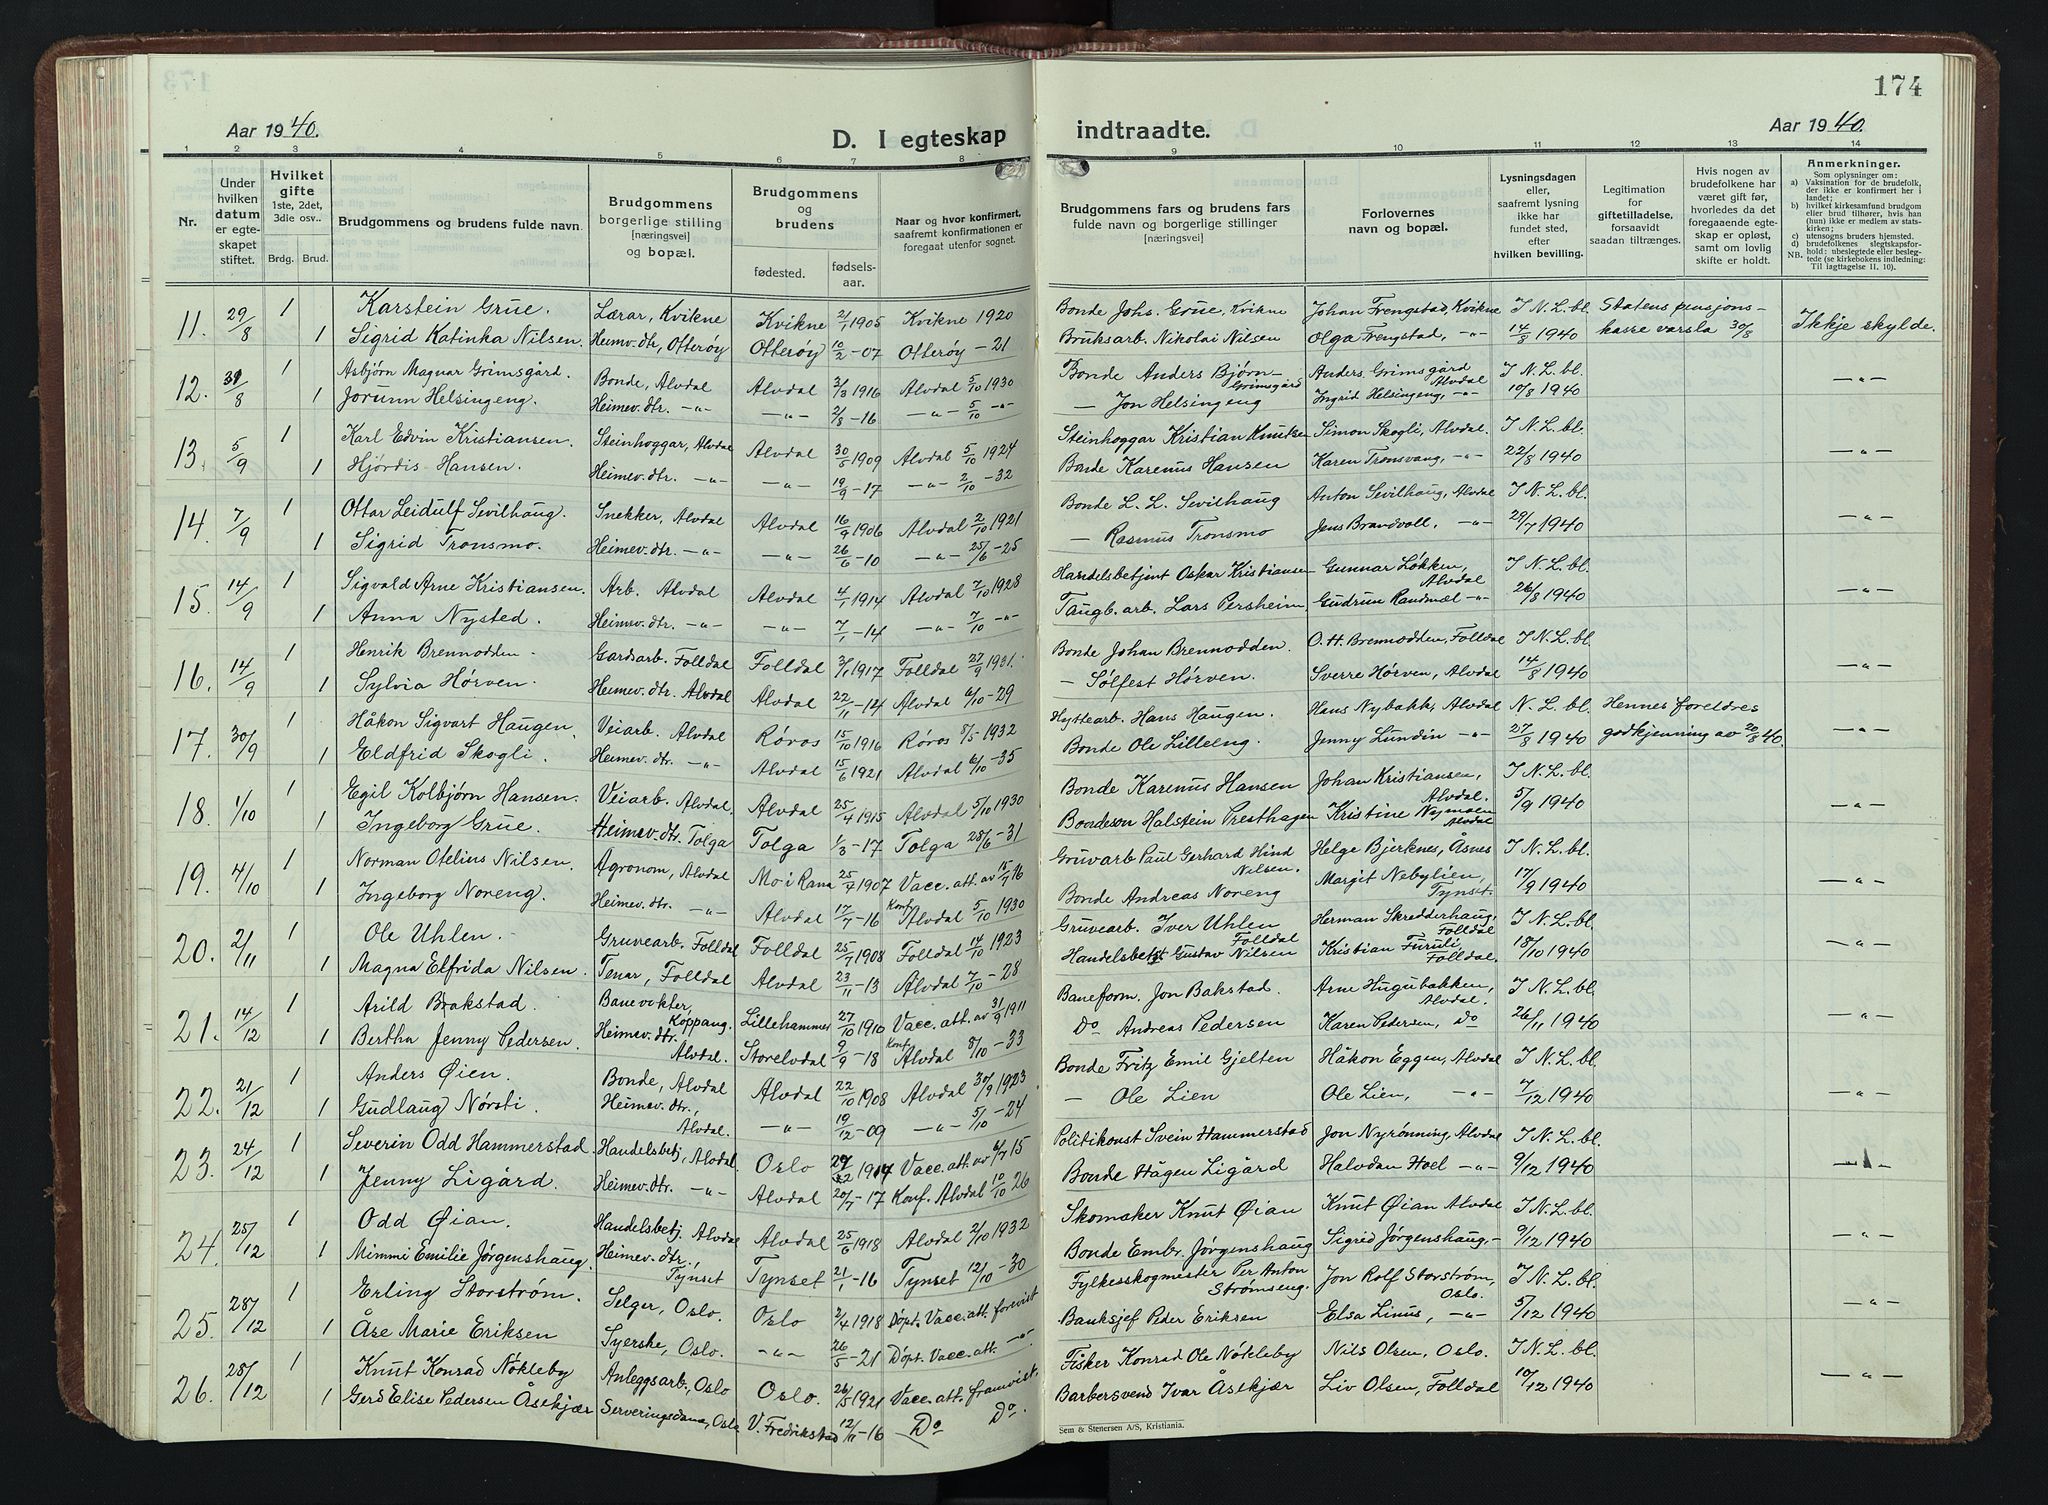 174
Aar 1940.
D. I egteskap indtraadte.
Aar 1940.
1 2 3 4 5 6 7 8 9 10 11 12 13 14
Nr.
Under hvilken datum er egteskapet stiftet.
Hvilket gifte 1ste, 2det, 3die osv..
Brdg. Brud.
Brudgommens og brudens fulde navn.
Brudgommens borgerlige stilling [næringsvei] og bopæl.
Brudgommens og brudens
fødested. fødselsaar.
Naar og hvor konfirmert, saafremt konfirmationen er foregaat utenfor sognet.
Brudgommens fars og brudens fars fulde navn og borgerlige stillinger [næringsvei]
Forlovernes navn og bopæl.
Lysningsdagen eller, saafremt lysning ikke har fundet sted, efter hvilken bevilling.
Legitimation for giftetilladelse, forsaavidt saadan tiltrænges.
Hvis nogen av brudefolkene har været gift før, hvorledes da det foregaaende egteskap er opløst, samt om lovlig skifte er holdt.
Anmerkninger.
Som oplysninger om:
a) Vaksination for de brudefolk, der ikke er konfirmert her i landet;
b) hvilket kirkesamfund brudgom eller brud tilhører, hvis han (hun) ikke er medlem av statskirken;
c) utensogns bruders hjemsted.
d) brudefolkenes slegtskapsforhold: ubeslegtede eller beslegtede (se kirkebokens indledning:
NB. Til iagttagelse II. 10).
11. 29/8 1 Karstein Grue. Lærar, Kvikne Kvikne 2/1 1905 Kvikne 1920 Bonde Johs. Grue, Kvikne Johan Frengstad, Kvikne I N. L. bl. Statens pensjons-
1 Sigrid Katinka Nilsen. Heimev. dtr, Otterøy Otterøy 10/2 -07 Otterøy -21 Bruksarb. Nikolai Nilsen Olga Frengstad, -"- 14/8 1940 kasse varsla 30/8 Ikkje skylde.
12. 31/8 1 Asbjørn Magnar Grimsgård. Bonde, Alvdal Alvdal 3/3 1916 Alvdal 5/10 1930 Bonde Anders Bjørn-Grimsgård Anders Grimsgård Alvdal I N. L. bl.
1 Jorunn Helsingeng. Heimev. dtr. -"- -"- 2/8 -16 -"- 5/10 -"- — Jon Helsingeng Ingrid Helsingeng, -"- 10/8 1940 -"-
13. 5/9 1 Karl Edvin Kristiansen. Steinhoggar, Alvdal Alvdal 30/5 1909 Alvdal 5/10 1924 Steinhoggar Kristian Knutsen Simon Skogli, Alvdal. I N. L. bl.
1 Hjørdis Hansen. Heimev. dtr. -"- -"- 19/9 -17 -"- 2/10 -32 Bonde Karenus Hansen Karen Tronsvang, -"- 22/8 1940 -"-
14. 7/9 1 Ottar Leidulf Sevilhaug. Snekker, Alvdal Alvdal 16/9 1906 Alvdal 2/10 1921 Bonde L. L. Sevilhaug Anton Sevilhaug, Alvdal I N. L. bl.
1 Sigrid Tronsmo. Heimev. dtr. -"- -"- 26/6 -10 -"- 25/6 -25 — Rasmus Tronsmo Jens Brandvoll, -"- 29/7 1940 -"-
15. 14/9 1 Sigvald Arne Kristiansen. Arb. Alvdal Alvdal 4/1 1914 Alvdal 7/10 1928 Handelsbetjent Oskar Kristiansen Gunnar Løkken, Alvdal I N. L. bl.
1 Anna Nysted. Heimev. dtr. -"- -"- 7/1 -14 -"- 7/10 -"- Taugb. arb. Lars Persheim Gudrun Randmæl -"- 26/8 1940 -"-
16. 14/9 1 Henrik Brennodden. Gardsarb. Folldal Folldal 3/1 1917 Folldal 27/9 1931. Bonde Johan Brennodden. O. H. Brennodden, Folldal I N. L. bl.
1 Sylvia Hørven. Heimev. dtr. Alvdal Alvdal 22/11 -14 Alvdal 6/10 -29 — Sølfest Hørven. Sverre Hørven, Alvdal 14/8 1940 -"-
17. 30/9 1 Håkon Sigvart Haugen. Veiarb. Alvdal Røros 15/10 1916 Røros 8/5 1932 Hyttearb. Hans Haugen. Hans Nybakk, Alvdal N. L. bl. Hennes foreldres
1 Eldfrid Skogli. Heimev. dtr. -"- Alvdal 15/6 1921 Alvdal 6/10 -35 Bonde Ole Lilleeng. Jenny Lundin -"- 27/8 1940 godkjenning av 20/8 40. -"-
18. 1/10 1 Egil Kolbjørn Hansen. Veiarb. Alvdal, Alvdal 25/4 1915 Alvdal 5/10 1930 Bonde Karenus Hansen Johan Kristiansen, Alvdal. I N. L. bl.
1 Ingeborg Grue. Heimev. dtr. Tolga Tolga 1/3 -17 Tolga 28/6 -31 Bondeson Halstein Presthagen Kristine Nymoen Alvdal 5/9 1940 -"-
19. 4/10 1 Norman Otelius Nilsen. Agronom, Alvdal Mo i Rana 25/7 1907 Vacc. att. av 15/7 16 Gruvarb Paul Gerhard Hind Nilsen. Helge Bjerknes, Åsnes I N. L. bl.
1 Ingeborg Noreng. Heimev. dtr. -"- Alvdal 17/7 -16 Konf. Alvdal 5/10 1930 Bonde Andreas Noreng Margit Nebylien, Tynset. 17/9 1940 -"-
20. 2/11 1 Ole Uhlen. Gruvearb. Folldal Folldal 25/7 1908 Folldal 14/10 1923 Gruvearb. Iver Uhlen Folldal Herman Skredderhaug, Folldal I N. L. bl.
1 Magna Elfrida Nilsen. Tenar, Folldal Alvdal 23/11 -13 Alvdal 7/10 -28 Handelsbetj. Gustav Nilsen Kristian Furuli, Folldal. 18/10 1940 -"-
21. 14/12 1 Arild Bakstad. Banevokter, Koppang. Lillehammer 27/10 1910 Vacc. att. av 31/9 1911 Baneform. Jon Bakstad. Arne Hugubakken, Alvdal. I N. L. bl.
1 Bertha Jenny Pedersen. Heimev. dtr. Alvdal. Storelvdal 9/9 -18 Konf. Alvdal 8/10 -33 Do Andreas Pedersen Karen Pedersen, Do 26/11 1940 -"-
22. 21/12 1 Anders Øien. Bonde, Alvdal Alvdal 22/10 1908 Alvdal 30/9 1923 Bonde Fritz Emil Gjelten Håkon Eggen, Alvdal I N. L. bl.
1 Gudlaug Nørsti. Heimev. dtr., Alvdal. -"- 19/12 -09 -"- 5/10 -24 — Ole Lien Ole Lien, -"- 7/12 1940 -"-
23. 24/12 1 Severin Odd Hammerstad. Handelsbetj, Alvdal Oslo 1914 Vacc. att. av 6/7 15 Politikonst Svein Hammerstad Jon Nyrønning, Alvdal I N. L. bl.
1 Jenny Ligård. Heimev. dtr. -"- Alvdal 20/7 -17 Konf. Alvdal 10/10 26 Bonde Hågen Ligård Halvdan Hoel -"- 9/12 1940 -"-
24. 25/12 1 Odd Øian. Handelsbetj. Alvdal Alvdal 25/6 1918 Alvdal 2/10 1932 Skomaker Knut Øian Knut Øian Alvdal I N. L. bl.
1 Mimmi Emilie Jørgenshaug. Heimev. dtr., Tynset Tynset 21/1 -16 Tynset 12/10 -30 Bonde Embr. Jørgenshaug Sigrid Jørgenshaug, - 9/12 1940 -"-
25. 28/12 1 Erling Storstrøm. Selger, Oslo. Oslo 2/4 1918 Døpt. Vacc. att. forevist Fylkesskogmester Per Anton Strømseng. Jon Rolf Storstrøm, Oslo. I N. L. bl.
1 Åse Marie Eriksen Syerske, Oslo. -"- 26/5 -21 Døpt. Vacc. att. -"- Banksjef Peder Eriksen Elsa Linus, -"- 5/12 1940 -"-
26. 28/12 1 Knut Konrad Nökleby Anleggsarb., Oslo Oslo. 26/5 1921 Vacc. att. framvist. Fisker Konrad Ole Nökleby Nils Olsen, Oslo. I N. L. bl.
1 Gerd Elise Pedersen Åsekjær Serveringsdame, Oslo V. Fredrikstad 12/11 -16 Do Do. Barbersvend Ivar Åsekjær Liv Olsen, Folldal 10/12 1940 -"-
Sem & Stenersen A/S, Kristiania.